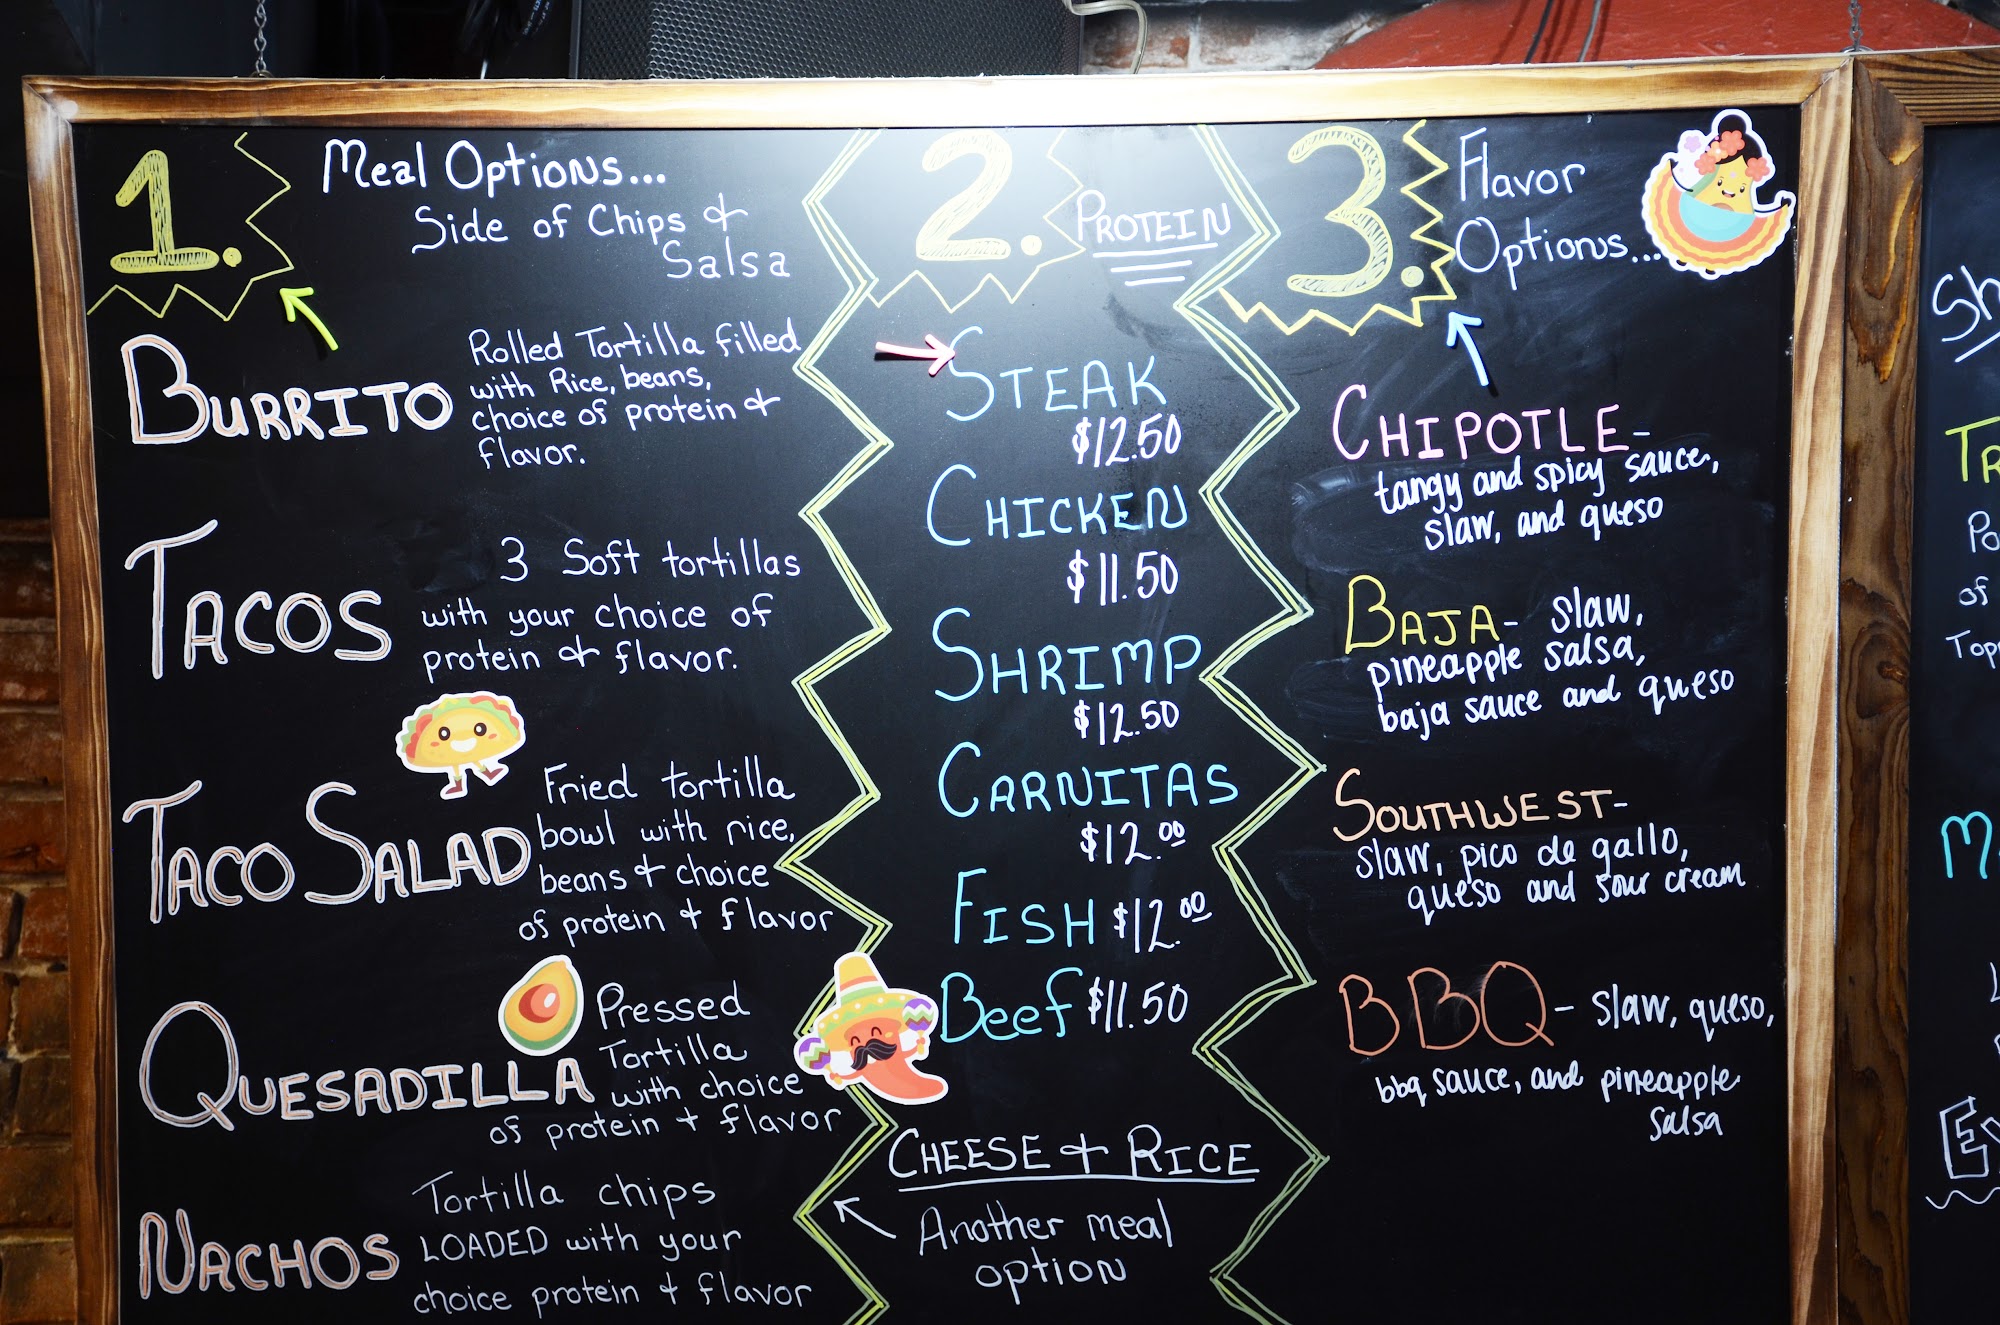 1.
Meal Options...
Side of Chips &
Salsa
BURRITO
Rolled Tortilla filled
with Rice, beans,
choice of protein &
flavor.
TACOS
3 Soft tortillas
with your choice of
protein & flavor.
TACO SALAD
Fried tortilla
bowl with rice,
beans & choice
of protein & flavor
QUESADILLA
Pressed
Tortilla
with choice
of protein & flavor
NACHOS
Tortilla chips
LOADED with your
choice protein & flavor
2.
PROTEIN
STEAK
$12.50
CHICKEN
$11.50
SHRIMP
$12.50
CARNITAS
$12.00
FISH $12.00
Beef $11.50
CHEESE & RICE
Another meal
option
3.
Flavor
Options...
CHIPOTLE-
tangy and spicy sauce,
slaw, and queso
BAJA- slaw,
pineapple salsa,
baja sauce and queso
SOUTHWEST-
slaw, pico de gallo,
queso and sour cream
BBQ- slaw, queso,
bbq sauce, and pineapple
salsa
of